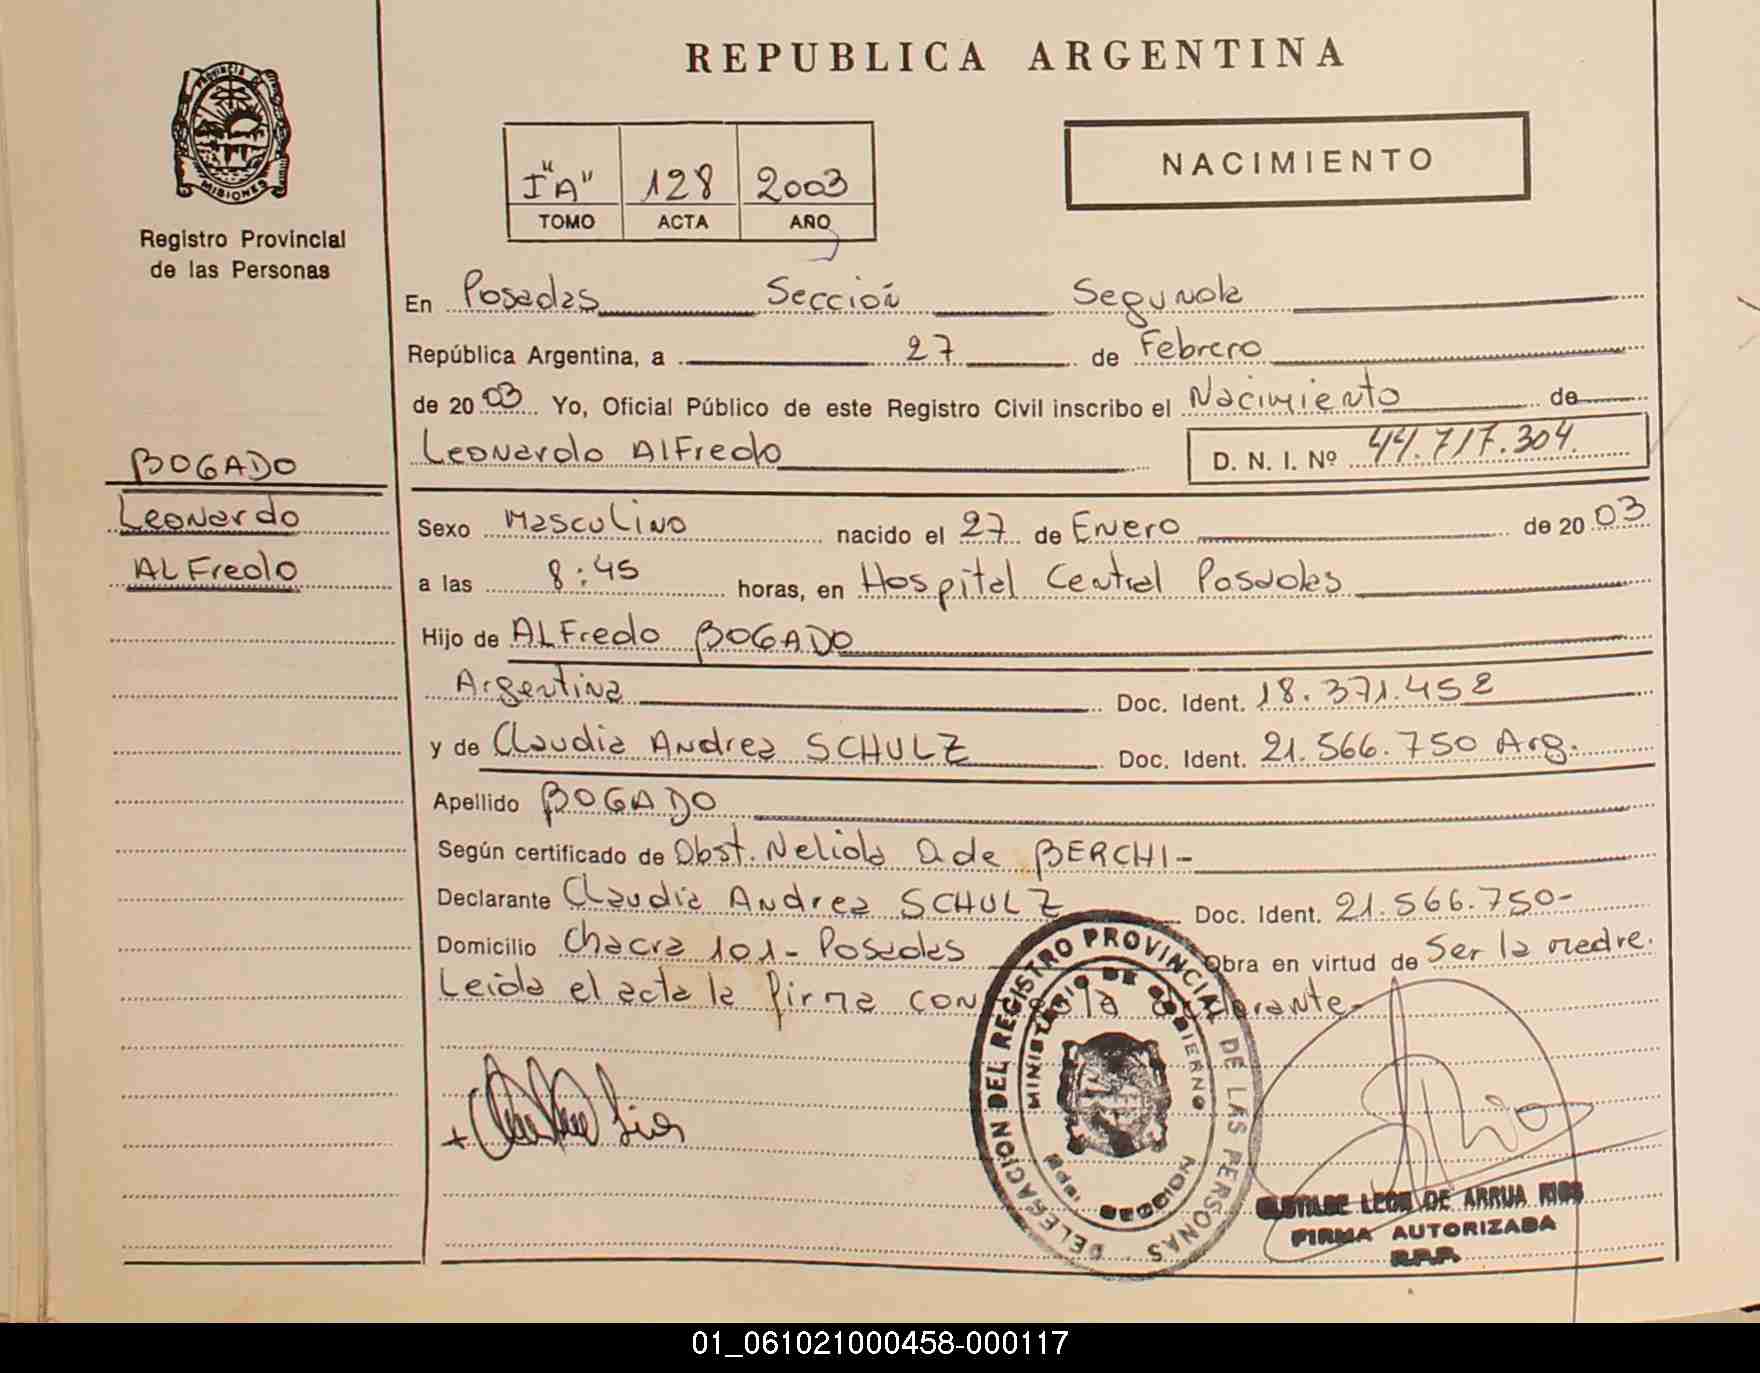 REPUBLICA ARGENTINA
PROVINCIA DE
MISIONES
Registro Provincial
de las Personas
NACIMIENTO
I"A" 128 2003
TOMO ACTA AÑO
En Posadas Sección Segunda
República Argentina, a 27 de Febrero
de 2003 Yo, Oficial Público de este Registro Civil inscribo el Nacimiento de
Leonardo Alfredo D. N. I. Nº 44.717.304.
BOGADO
Leonardo
ALFredo
Sexo Masculino nacido el 27 de Enero de 2003
a las 8:45 horas, en Hospital Central Posadas
Hijo de ALFredo BOGADO
Argentina Doc. Ident. 18.371.452
y de Claudia Andrea SCHULZ Doc. Ident. 21.566.750 Arg.
Apellido BOGADO
Según certificado de Obst. Nelida Q de BERCHI-
Declarante Claudia Andrea SCHULZ Doc. Ident. 21.566.750-
Domicilio Chacra 101- Posadas Obra en virtud de Ser la madre.
Leida el acta la firma con la declarante-
DELEGACION DEL REGISTRO PROVINCIAL DE LAS PERSONAS
MINISTERIO DE GOBIERNO
2da. SECCION
LEON DE ARRUA RIOS
FIRMA AUTORIZADA
R.P.P.
01_061021000458-000117